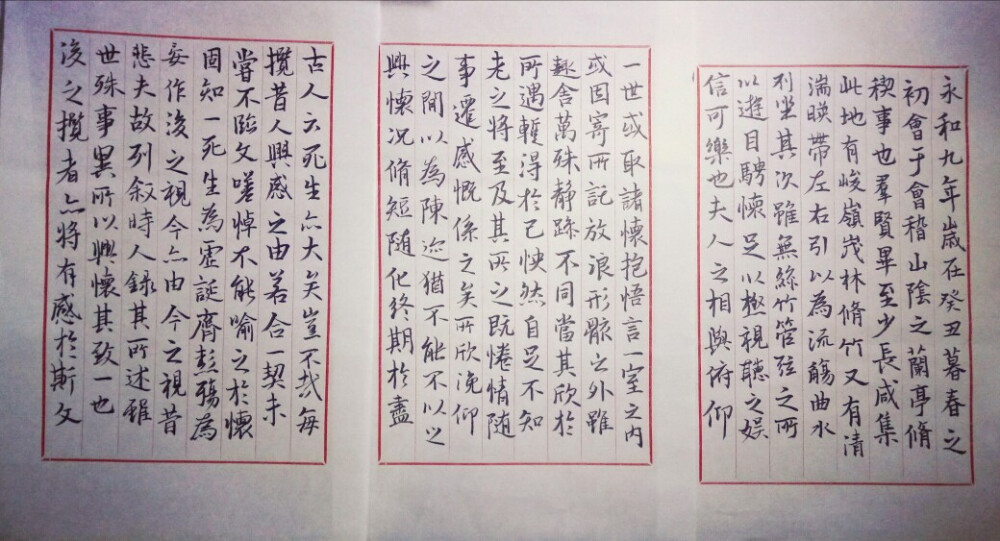 永和九年歲在癸丑暮春之
初會于會稽山陰之蘭亭脩
禊事也羣賢畢至少長咸集
此地有峻嶺茂林脩竹又有清
湍暎帶左右引以為流觴曲水
列坐其次雖無絲竹管弦之所
以遊目騁懷足以極視聽之娛
信可樂也夫人之相與俯仰
一世或取諸懷抱悟言一室之內
或因寄所託放浪形骸之外雖
趣舍萬殊靜躁不同當其欣於
所遇暫得於己怏然自足不知
老之將至及其所之既惓情隨
事遷感慨係之矣所欣俛仰
之間以為陳迹猶不能不以之
興懷況脩短隨化終期於盡
古人云死生亦大矣豈不哉每
攬昔人興感之由若合一契未
嘗不臨文嗟悼不能喻之於懷
固知一死生為虛誕齊彭殤為
妄作後之視今亦由今之視昔
悲夫故列叙時人錄其所述雖
世殊事異所以興懷其致一也
後之攬者亦將有感於斯文